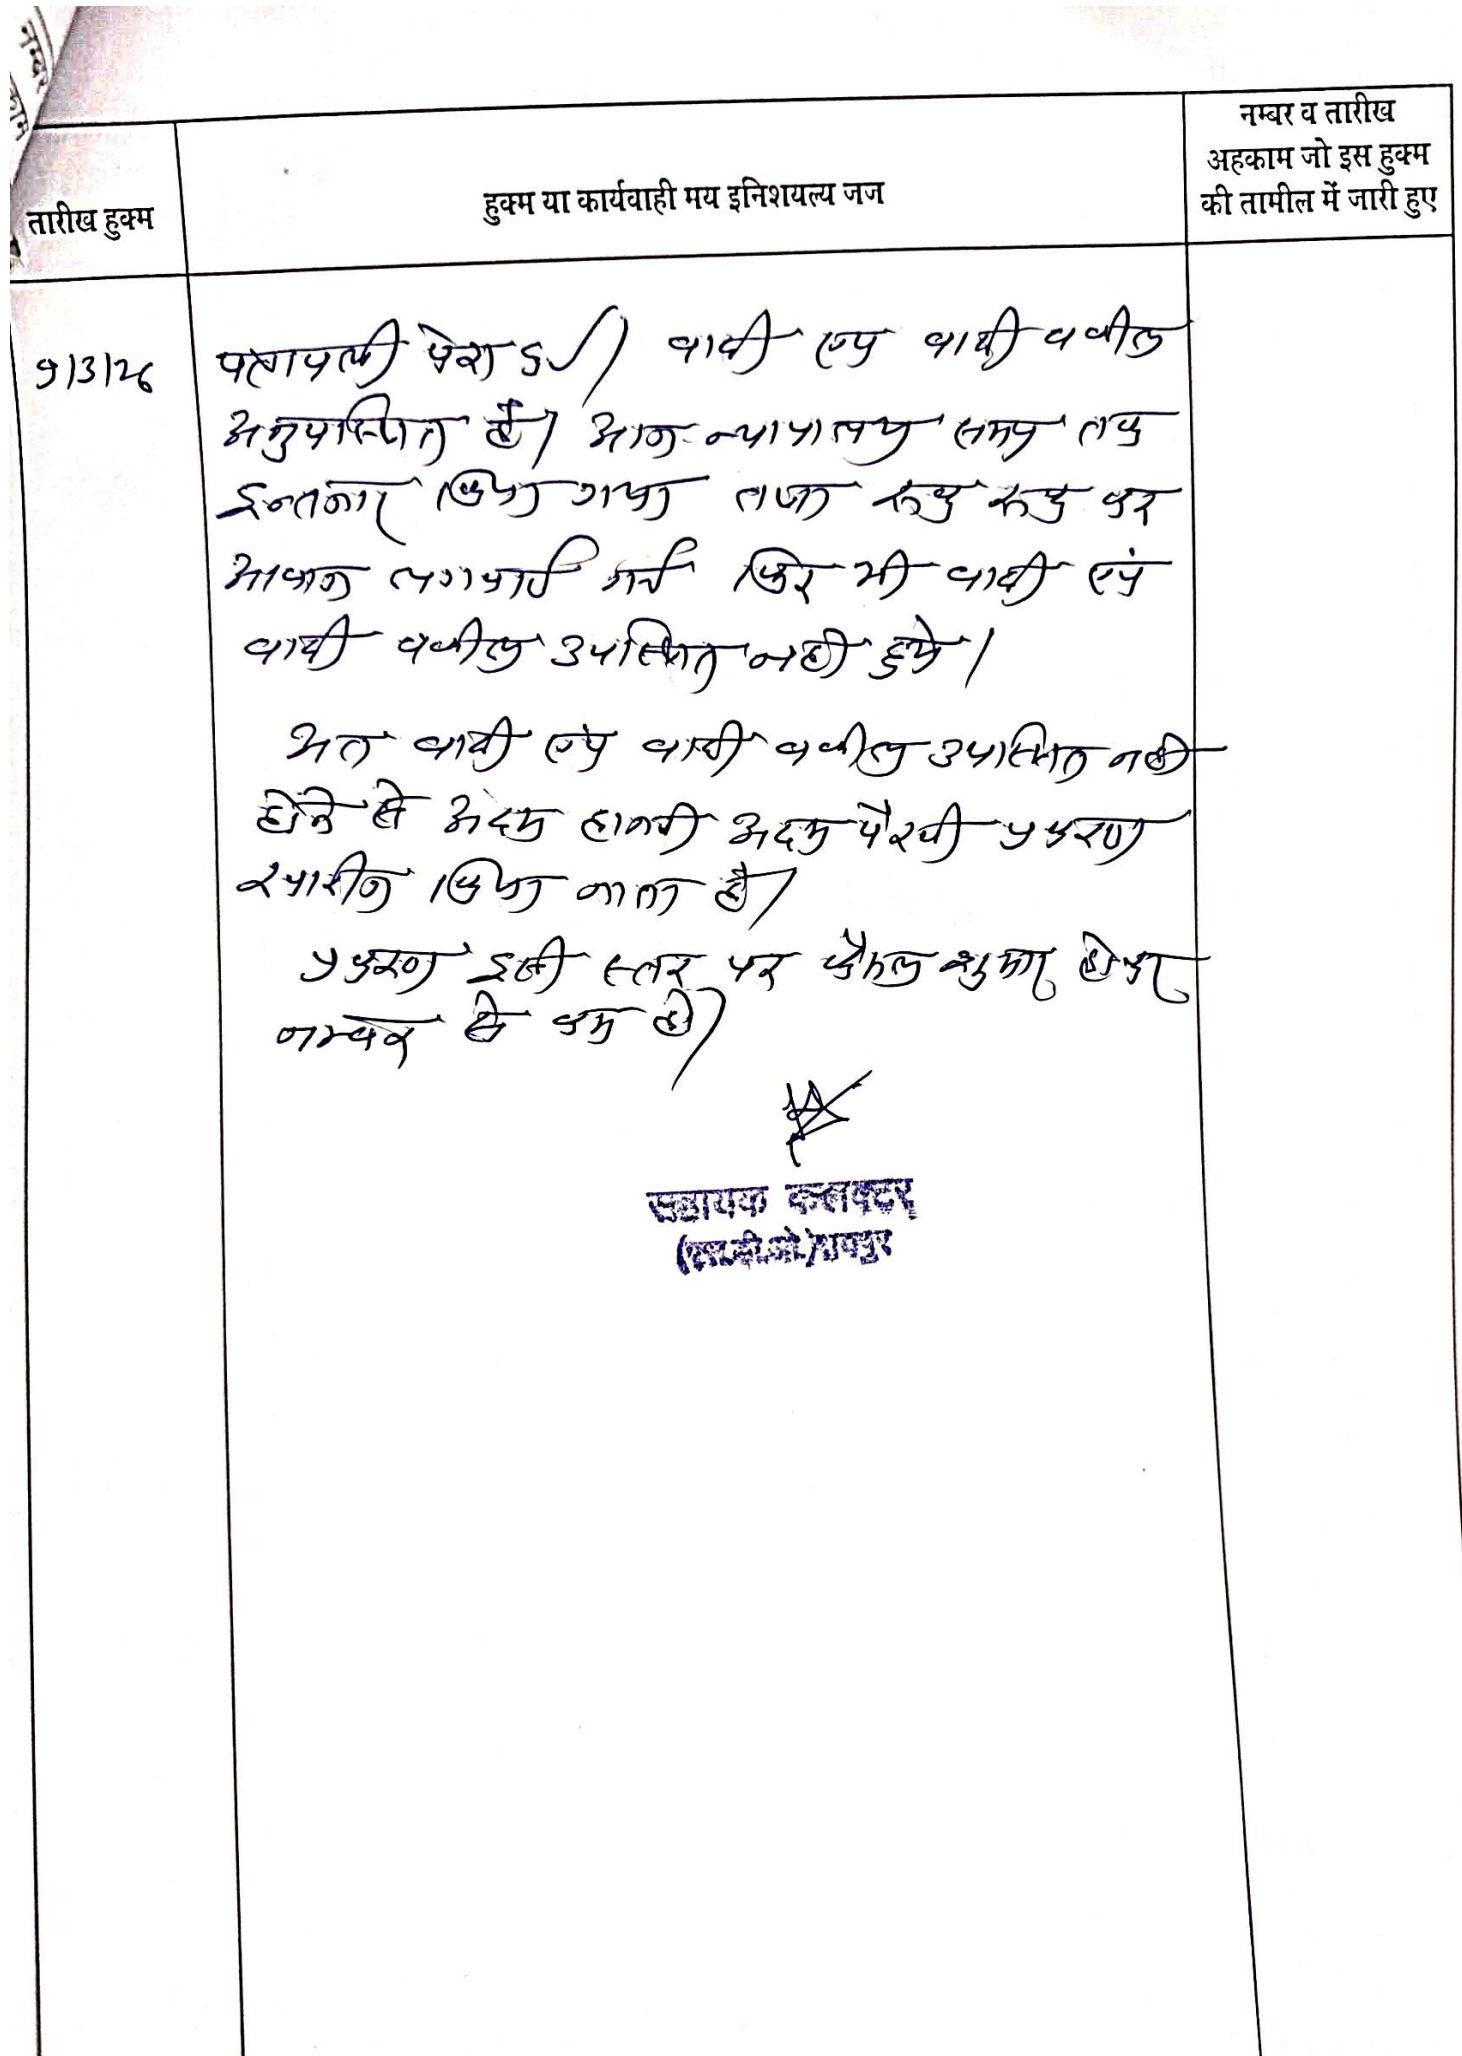 नम्बर
तारीख हुक्म
हुक्म या कार्यवाही मय इनिशयल्य जज
नम्बर व तारीख
अहकाम जो इस हुक्म
की तामील में जारी हुए
9/3/26
पत्रावली पेश हुई। वादी एवं वादी वकील
अनुपस्थित है। आज न्यायालय समय तक
इन्तजार किया गया तथा रूक रूक कर
आवाज लगवाई गई फिर भी वादी एवं
वादी वकील उपस्थित नही हुये।
अत वादी एवं वादी वकील उपस्थित नही
होने से अदम हाजरी अदम पैरवी प्रकरण
खारीज किया जाता है।
प्रकरण इसी स्तर पर फैसल शुमार होकर
नम्बर से कम हो।
सहायक कलक्टर
(एस.डी.ओ.)